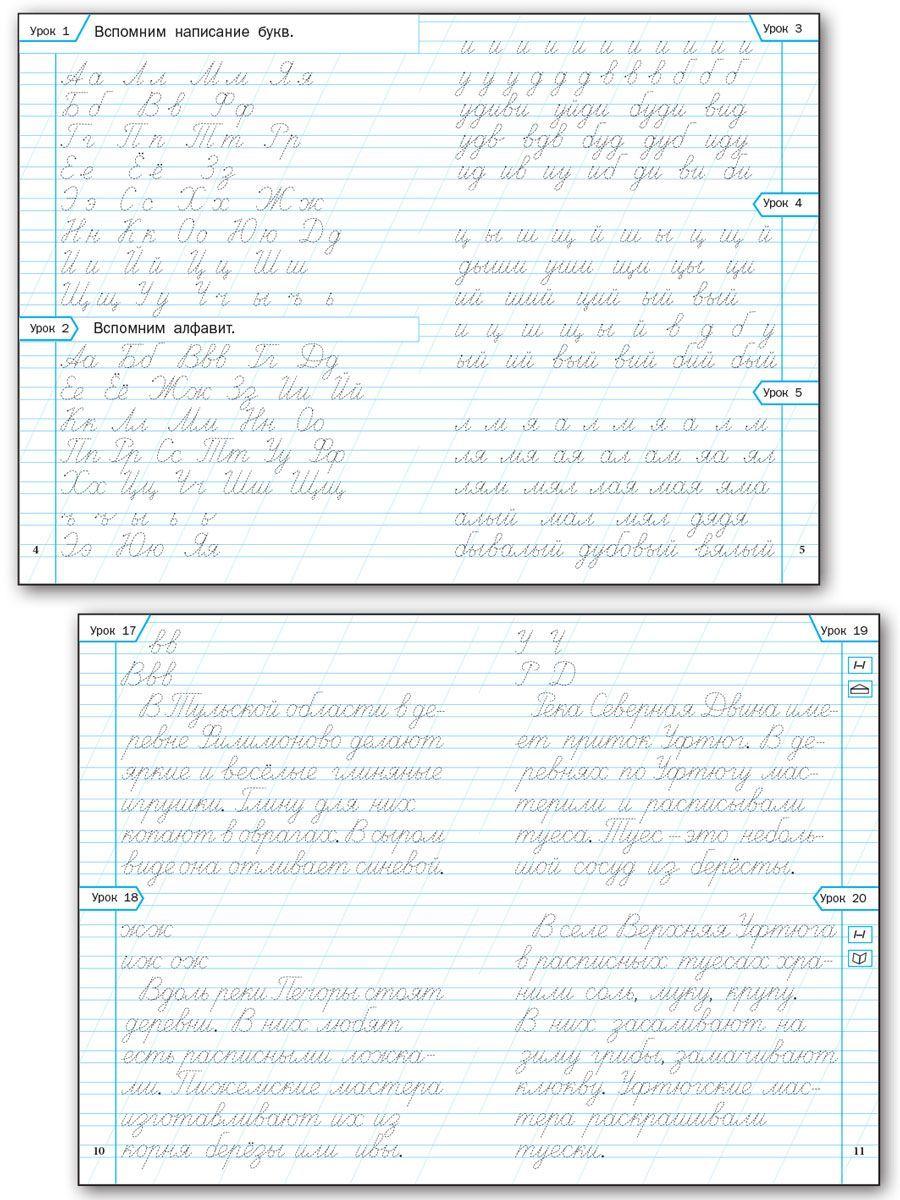 Урок 1 Вспомним написание букв.
Аа Лл Мм Яя
Бб Вв Фф
Гг Пп Тт Рр
Ее Ёё Зз
Ээ Сс Хх Жж
Нн Кк Оо Юю Дд
Ии Йй Цц Шш
Щщ Уу Чч ы ъ ь
Урок 2 Вспомним алфавит.
Аа Бб Ввв Гг Дд
Ее Ёё Жж Зз Ии Йй
Кк Лл Мм Нн Оо
Пп Рр Сс Тт Уу Фф
Хх Цц Чч Шш Щщ
ъ ъ ы ь ь
Ээ Юю Яя
4
Урок 3
и и и и и и и и и и и
у у у д д д в в в б б б
удиви уйди буди вид
удв вдв буд дуб иду
ид ив иу иб ди ви би
Урок 4
ц ы ш щ й ш ы ц щ й
дыши уши щи цы ци
ий ший ций ый вый
и ц ш щ ы й в д б у
ый ий вый вий бий бый
Урок 5
л м я а л м я а л м
ля мя ая ал ам яа ял
лям мял лая мая яма
алый мал мял дядя
бывалый дубовый вялый
5
Урок 17
вв
Ввв
В Тульской области в де-
ревне Филимоново делают
яркие и весёлые глиняные
игрушки. Глину для них
копают в оврагах. В сыром
виде она отливает синевой.
Урок 18
жж
иж ож
Вдоль реки Печоры стоят
деревни. В них любят
есть расписными ложка-
ми. Пижемские мастера
изготавливают их из
корня берёзы или ивы.
10
Урок 19
У Ч
Р D
Река Северная Двина име-
ет приток Уфтюг. В де-
ревнях по Уфтюгу мас-
терили и расписывали
туеса. Туес – это неболь-
шой сосуд из берёсты.
Урок 20
В селе Верхняя Уфтюга
в расписных туесах хра-
нили соль, муку, крупу.
В них засаливают на
зиму грибы, замачивают
клюкву. Уфтюгские мас-
тера раскрашивали
туески.
11